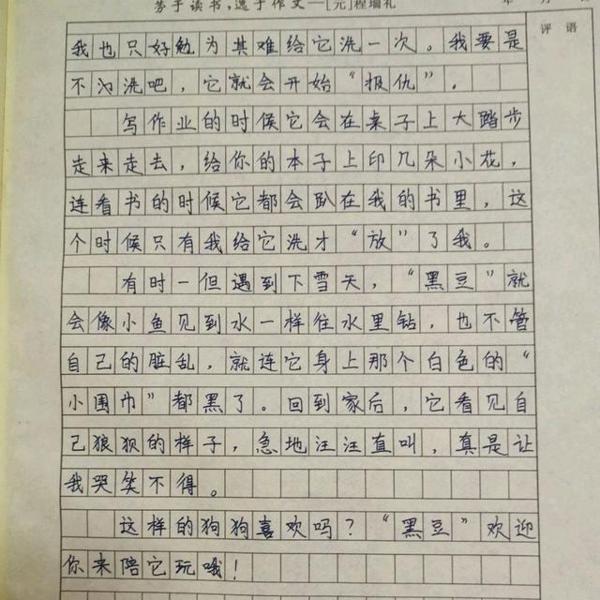 劳于读书,逸于作文—[元]程端礼
年 月
评 语
我也只好勉为其难给它洗一次。我要是
不洗吧，它就会开始“报仇”。
写作业的时候它会在桌子上大踏步
走来走去，给你的本子上印几朵小花，
连看书的时候它都会趴在我的书里，这
个时候只有我给它洗才“放”了我。
有时一但遇到下雪天，“黑豆”就
会像小鱼见到水一样往水里钻，也不管
自己的脏乱，就连它身上那个白色的“
小围巾”都黑了。回到家后，它看见自
己狼狈的样子，急地汪汪直叫，真是让
我哭笑不得。
这样的狗狗喜欢吗？“黑豆”欢迎
你来陪它玩哦！